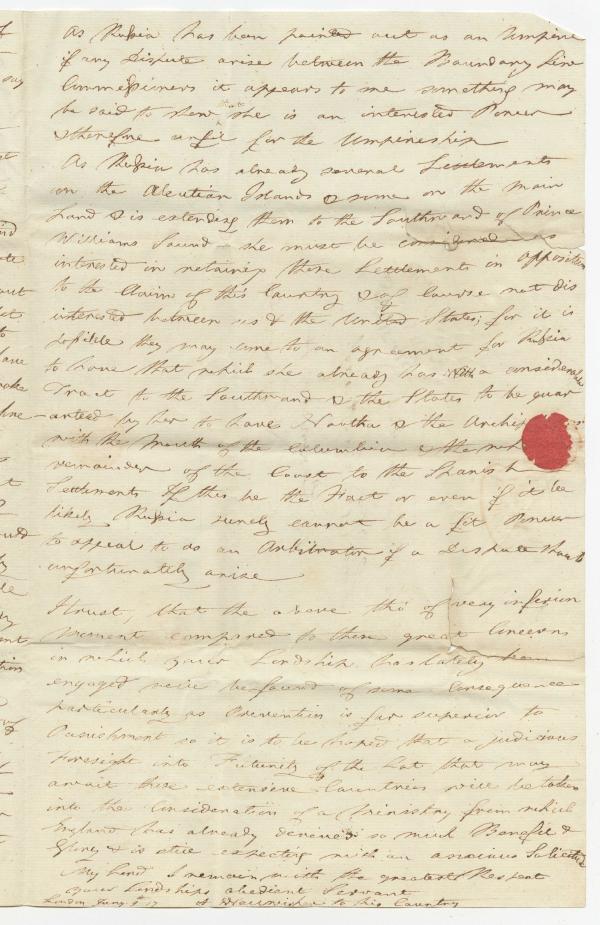 As Russia has been pointed out as an Umpire
if any Dispute arise between the Boundary Line
Commissioners it appears to me something may
be said to shew that she is an interested Power
& therefore unfit for the Umpireship
As Russia has already several Settlements
on the Aleutian Islands & some on the main
Land & is extending them to the Southward of Prince
Williams Sound – she must be considered as
interested in retaining these Settlements in opposition
to the Claim of this Country & of Course not dis
interested between us & the United States; for it is
possible they may come to an agreement for Russia
to have that which she already has with a considerable
Tract to the Southward & the States to be guar
anteed by her to have Nootka & the Archip
with the Mouth of the Columbia & the
remainder of the Coast to the Spanish
Settlements If this be the Fact or even if it be
likely Russia surely cannot be a fit Power
to appeal to as an Arbitrator if a Dispute should
unfortunately arise
I trust, that the above tho' of very inferior
moment compared to those great Concerns
in which your Lordship has lately been
engaged will be found of some Consequence
particularly as Prevention is far superior to
Punishment so it is to be hoped that a judicious
Foresight into Futurity of the Lot that may
await these extensive Countries will be taken
into the Consideration of a Ministry from which
England has already derived so much Benefit &
Glory & is still expecting with an anxious Solicitude
My Lord I remain with the greatest Respect
your Lordships obedient Servant
London A Wellwisher to his Country